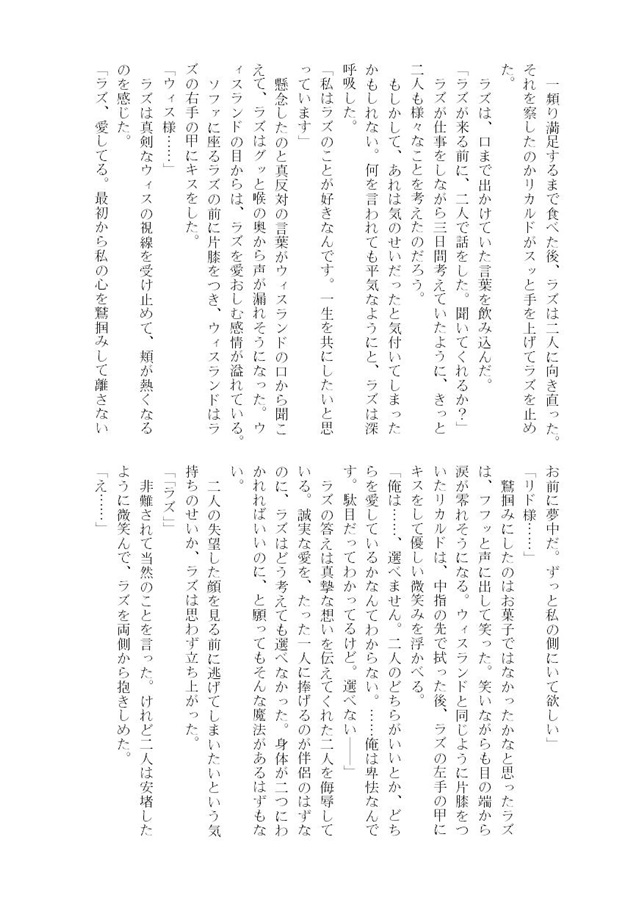 一頻り満足するまで食べた後、ラズは二人に向き直った。
それを察したのかリカルドがスッと手を上げてラズを止め
た。
　ラズは、口まで出かけていた言葉を飲み込んだ。
「ラズが来る前に、二人で話をした。聞いてくれるか？」
　ラズが仕事をしながら三日間考えていたように、きっと
二人も様々なことを考えたのだろう。
　もしかして、あれは気のせいだったと気付いてしまった
かもしれない。何を言われても平気なようにと、ラズは深
呼吸した。
「私はラズのことが好きなんです。一生を共にしたいと思
っています」
　懸念したのと真反対の言葉がウィスランドの口から聞こ
えて、ラズはグッと喉の奥から声が漏れそうになった。ウ
ィスランドの目からは、ラズを愛おしむ感情が溢れている。
　ソファに座るラズの前に片膝をつき、ウィスランドはラ
ズの右手の甲にキスをした。
「ウィス様……」
　ラズは真剣なウィスの視線を受け止めて、頬が熱くなる
のを感じた。
「ラズ、愛してる。最初から私の心を鷲掴みして離さない
お前に夢中だ。ずっと私の側にいて欲しい」
「リド様……」
　鷲掴みにしたのはお菓子ではなかったかなと思ったラズ
は、フフッと声に出して笑った。笑いながらも目の端から
涙が零れそうになる。ウィスランドと同じように片膝をつ
いたリカルドは、中指の先で拭った後、ラズの左手の甲に
キスをして優しい微笑みを浮かべる。
「俺は……、選べません。二人のどちらがいいとか、どち
らを愛しているかなんてわからない。……俺は卑怯なんで
す。駄目だってわかってるけど。選べない――」
　ラズの答えは真摯な想いを伝えてくれた二人を侮辱して
いる。誠実な愛を、たった一人に捧げるのが伴侶のはずな
のに、ラズはどう考えても選べなかった。身体が二つにわ
かれればいいのに、と願ってもそんな魔法があるはずもな
い。
　二人の失望した顔を見る前に逃げてしまいたいという気
持ちのせいか、ラズは思わず立ち上がった。
「「ラズ」」
　非難されて当然のことを言った。けれど二人は安堵した
ように微笑んで、ラズを両側から抱きしめた。
「え……」